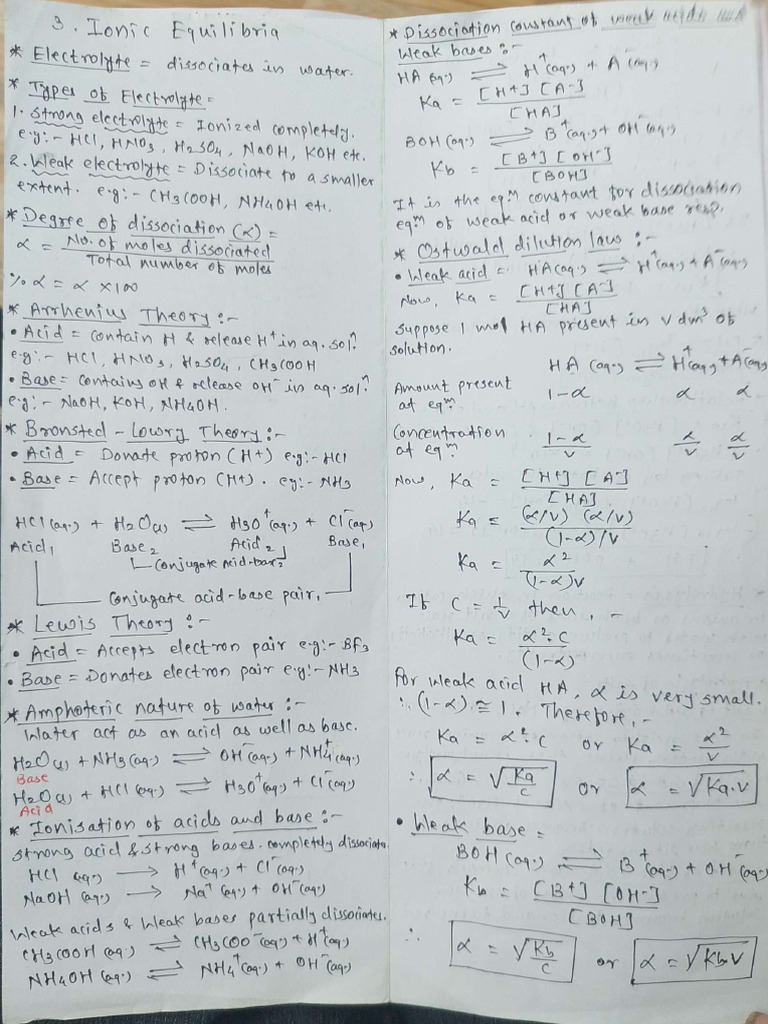 3. Ionic Equilibria
* Electrolyte = dissociates in water.
* Types of Electrolyte =
1. Strong electrolyte = Ionized completely.
e.g:- HCl, HNO3, H2SO4, NaOH, KOH etc.
2. Weak electrolyte = Dissociate to a smaller
extent. e.g:- CH3COOH, NH4OH etc.
* Degree of dissociation (α) =
α = No. of moles dissociated / Total number of moles
% α = α × 100
* Arrhenius Theory :-
• Acid = contain H & release H⁺ in aq. solⁿ.
e.g:- HCl, HNO3, H2SO4, CH3COOH
• Base = contains OH & release OH⁻ in aq. solⁿ.
e.g:- NaOH, KOH, NH4OH.
* Bronsted - Lowry Theory :-
• Acid = Donate proton (H+) e.g:- HCl
• Base = Accept proton (H+). e.g:- NH3
HCl(aq.) + H2O(l) ⇌ H3O⁺(aq.) + Cl⁻(aq)
Acid1 Base2 Acid2 Base1
Conjugate Acid-base2
Conjugate acid-base pair1
* Lewis Theory :-
• Acid = Accepts electron pair e.g:- BF3
• Base = Donates electron pair e.g:- NH3
* Amphoteric nature of water :-
Water act as an acid as well as base.
H2O(l) + NH3(aq.) ⇌ OH⁻(aq.) + NH4⁺(aq.)
Base
H2O(l) + HCl(aq.) ⇌ H3O⁺(aq.) + Cl⁻(aq.)
Acid
* Ionisation of acids and base :-
Strong acid & strong bases. completely dissociate.
HCl (aq.) → H⁺(aq.) + Cl⁻(aq.)
NaOH (aq.) → Na⁺(aq.) + OH⁻(aq.)
Weak acids & Weak bases partially dissociates.
CH3COOH(aq.) ⇌ CH3COO⁻(aq.) + H⁺(aq.)
NH4OH (aq.) ⇌ NH4⁺(aq.) + OH⁻(aq.)
* Dissociation constant of weak acids
Weak bases :-
HA(aq.) ⇌ H⁺(aq.) + A⁻(aq.)
Ka = [H+] [A-] / [HA]
BOH(aq.) ⇌ B⁺(aq.) + OH⁻(aq.)
Kb = [B+] [OH-] / [BOH]
It is the eqᵐ constant for dissociation
eqᵐ of weak acid or weak base resp.
* Ostwald dilution laws :-
• Weak acid = HA(aq.) ⇌ H⁺(aq.) + A⁻(aq.)
Now, Ka = [H+] [A-] / [HA]
Suppose 1 mol HA present in V dm³ of
solution.
HA (aq.) ⇌ H⁺(aq.) + A⁻(aq.)
Amount present at eqᵐ. 1-α α α
Concentration at eqᵐ. 1-α/V α/V α/V
Now, Ka = [H+] [A-] / [HA]
Ka = (α/V) (α/V) / (1-α)/V
Ka = α² / (1-α)V
If C = 1/V then, -
Ka = α².C / (1-α)
For weak acid HA, α is very small.
∴ (1-α) ≅ 1. Therefore, -
Ka = α².C or Ka = α²/V
∴ α = √Ka/C or α = √Ka.V
• Weak base =
BOH (aq.) ⇌ B⁺(aq.) + OH⁻(aq.)
Kb = [B+] [OH-] / [BOH]
∴ α = √Kb/C or α = √KbV